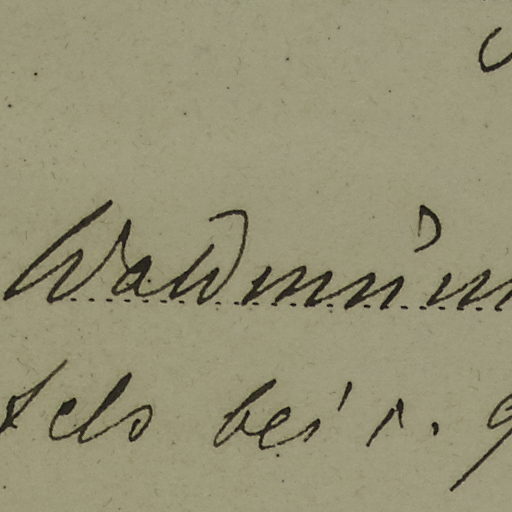 Waldmün
fels bei r. g